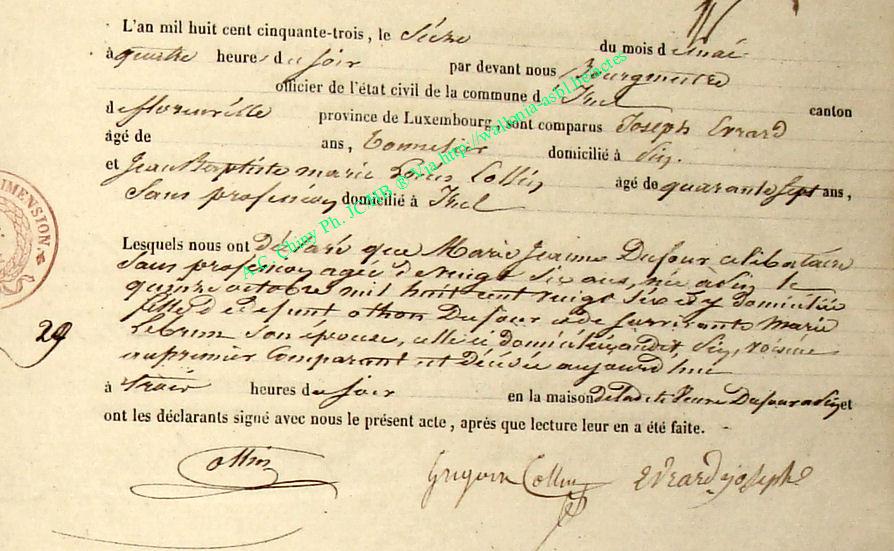 L'an mil huit cent cinquante-trois, le Seize du mois de mai
à quatre heures du soir par devant nous Bourgmestre
officier de l'état civil de la commune d Izel canton
de florenville province de Luxembourg, sont comparus Joseph Evrard
âgé de ans, tonnelier domicilié à
et Jean Baptiste marie Louis Collin âgé de quarante Sept ans,
Sans profession domicilié à Izel
Lesquels nous ont déclaré que Marie Jeanne Dufour celibataire
Sans profession, agée de vingt Six ans, née à le
quinze octobre mil huit cent vingt Six et y domiciliée
fille de defunt othon Dufour et de Survivante Marie
Lebrun Son épouse, celle ci domiciliée audit voisine
au premier Comparant est Décédée aujourd'hui
à trois heures du soir en la maison de la dite Veuve Dufour à et
ont les déclarants signé avec nous le présent acte, après que lecture leur en a été faite.
29
Collin Evrard joseph
DIMENSION.
A.C. Chiny Ph. JCMB ® Via http://wallonia-asbl.be/actes